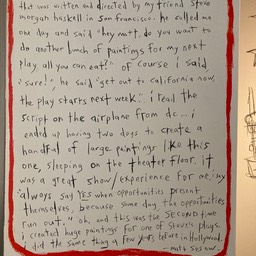 that was written and directed by my friend Steve
morgan haskell in San francisco. he called me
one day and said "hey matt, do you want to
do another bunch of paintings for my next
play, all you can eat?" of course i said
"sure!", he said "get out to california now,
the play starts next week." i read the
script on the airplane from dc... i
ended up having two days to create a
handful of large paintings like this
one, sleeping on the theater floor. it
was a great show/experience for me. my
"always say YES when opportunities present
themselves, because some day the opportunities
run out." oh, and this was the SECOND time
i created huge paintings for one of Steve's plays.
i did the same thing a few years before in Hollywood.
- matt Sesow